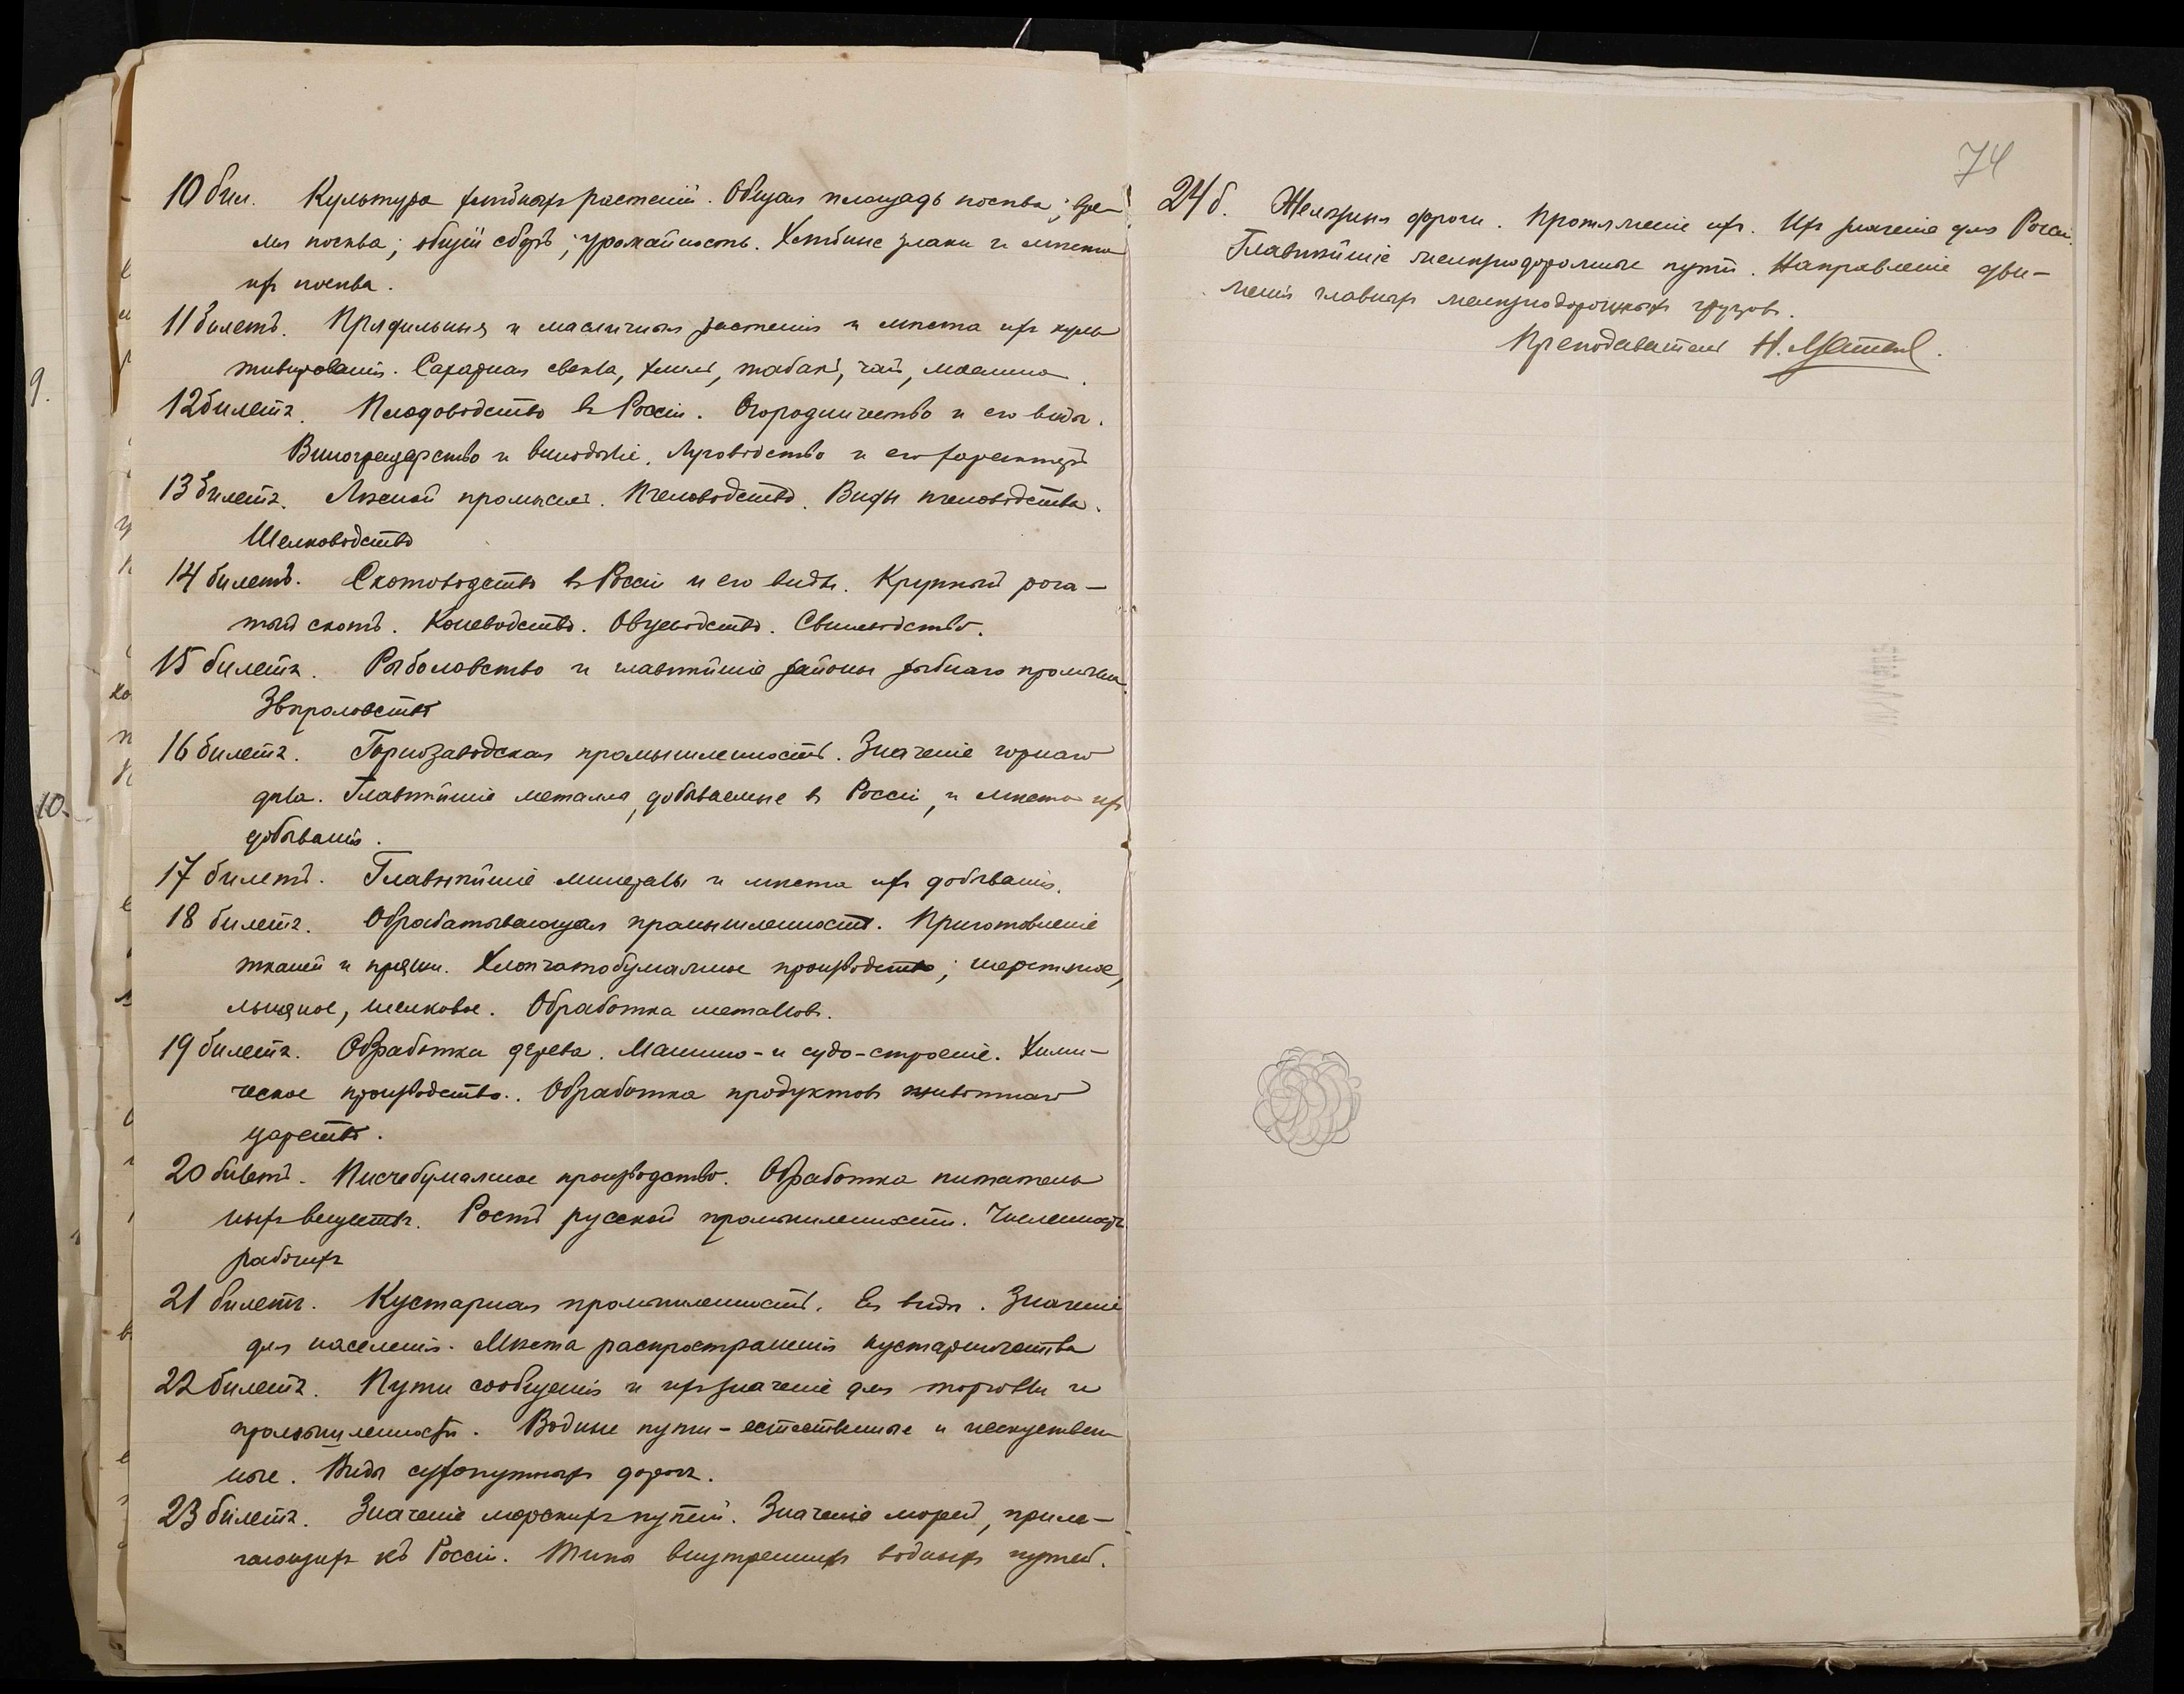 10 бил. Культура хлѣбныхъ растеній. Общая площадь посѣва; вре-
мя посѣва; общій сборъ; урожайность. Хлѣбные злаки и мѣста
ихъ посѣва.
11 билетъ. Прядильныя и масличныя растенія и мѣста ихъ куль
тивированія. Сахарная свекла, хмель, табакъ, чай, маслина.
12 билетъ. Плодоводство въ Россіи. Огородничество и его виды.
Виноградарство и винодѣліе. Луговодство и его характеръ
13 билетъ. Лѣсной промыселъ. Пчеловодство. Виды пчеловодства.
Шелководство
14 билетъ. Скотоводство въ Россіи и его виды. Крупный рога-
тый скотъ. Коневодство. Овцеводство. Свиноводство.
15 билетъ. Рыболовство и главнѣйшіе районы рыбнаго промысла.
Звѣроловство
16 билетъ. Горнозаводская промышленность. Значеніе горнаго
дѣла. Главнѣйшіе металлы, добываемые въ Россіи, и мѣста ихъ
добыванія.
17 билетъ. Главнѣйшіе минералы и мѣста ихъ добыванія.
18 билетъ. Обрабатывающая промышленность. Приготовленіе
тканей и пряжи. Хлопчатобумажное производство; шерстяное,
льняное, шелковое. Обработка металловъ.
19 билетъ. Обработка дерева. Машино- и судо-строеніе. Хими-
ческое производство. Обработка продуктовъ животнаго
царства.
20 билетъ. Писчебумажное производство. Обработка питатель
ныхъ веществъ. Ростъ русской промышленности. Численность
рабочихъ
21 билетъ. Кустарная промышленность. Ея виды. Значеніе
для населенія. Мѣста распространенія кустарничества
22 билетъ. Пути сообщенія и ихъ значеніе для торговли и
промышленности. Водные пути - естественные и искуствен
ные. Виды сухопутныхъ дорогъ.
23 билетъ. Значеніе морскихъ путей. Значеніе морей, приле-
гающихъ къ Россіи. Типы внутреннихъ водныхъ путей.
9.
10.
74
24 б. Желѣзныя дороги. Протяженіе ихъ. Ихъ значеніе для Россіи.
Главнѣйшіе желѣзнодорожные пути. Направленіе дви-
женія главныхъ желѣзнодорожныхъ грузовъ.
Преподаватель Н.